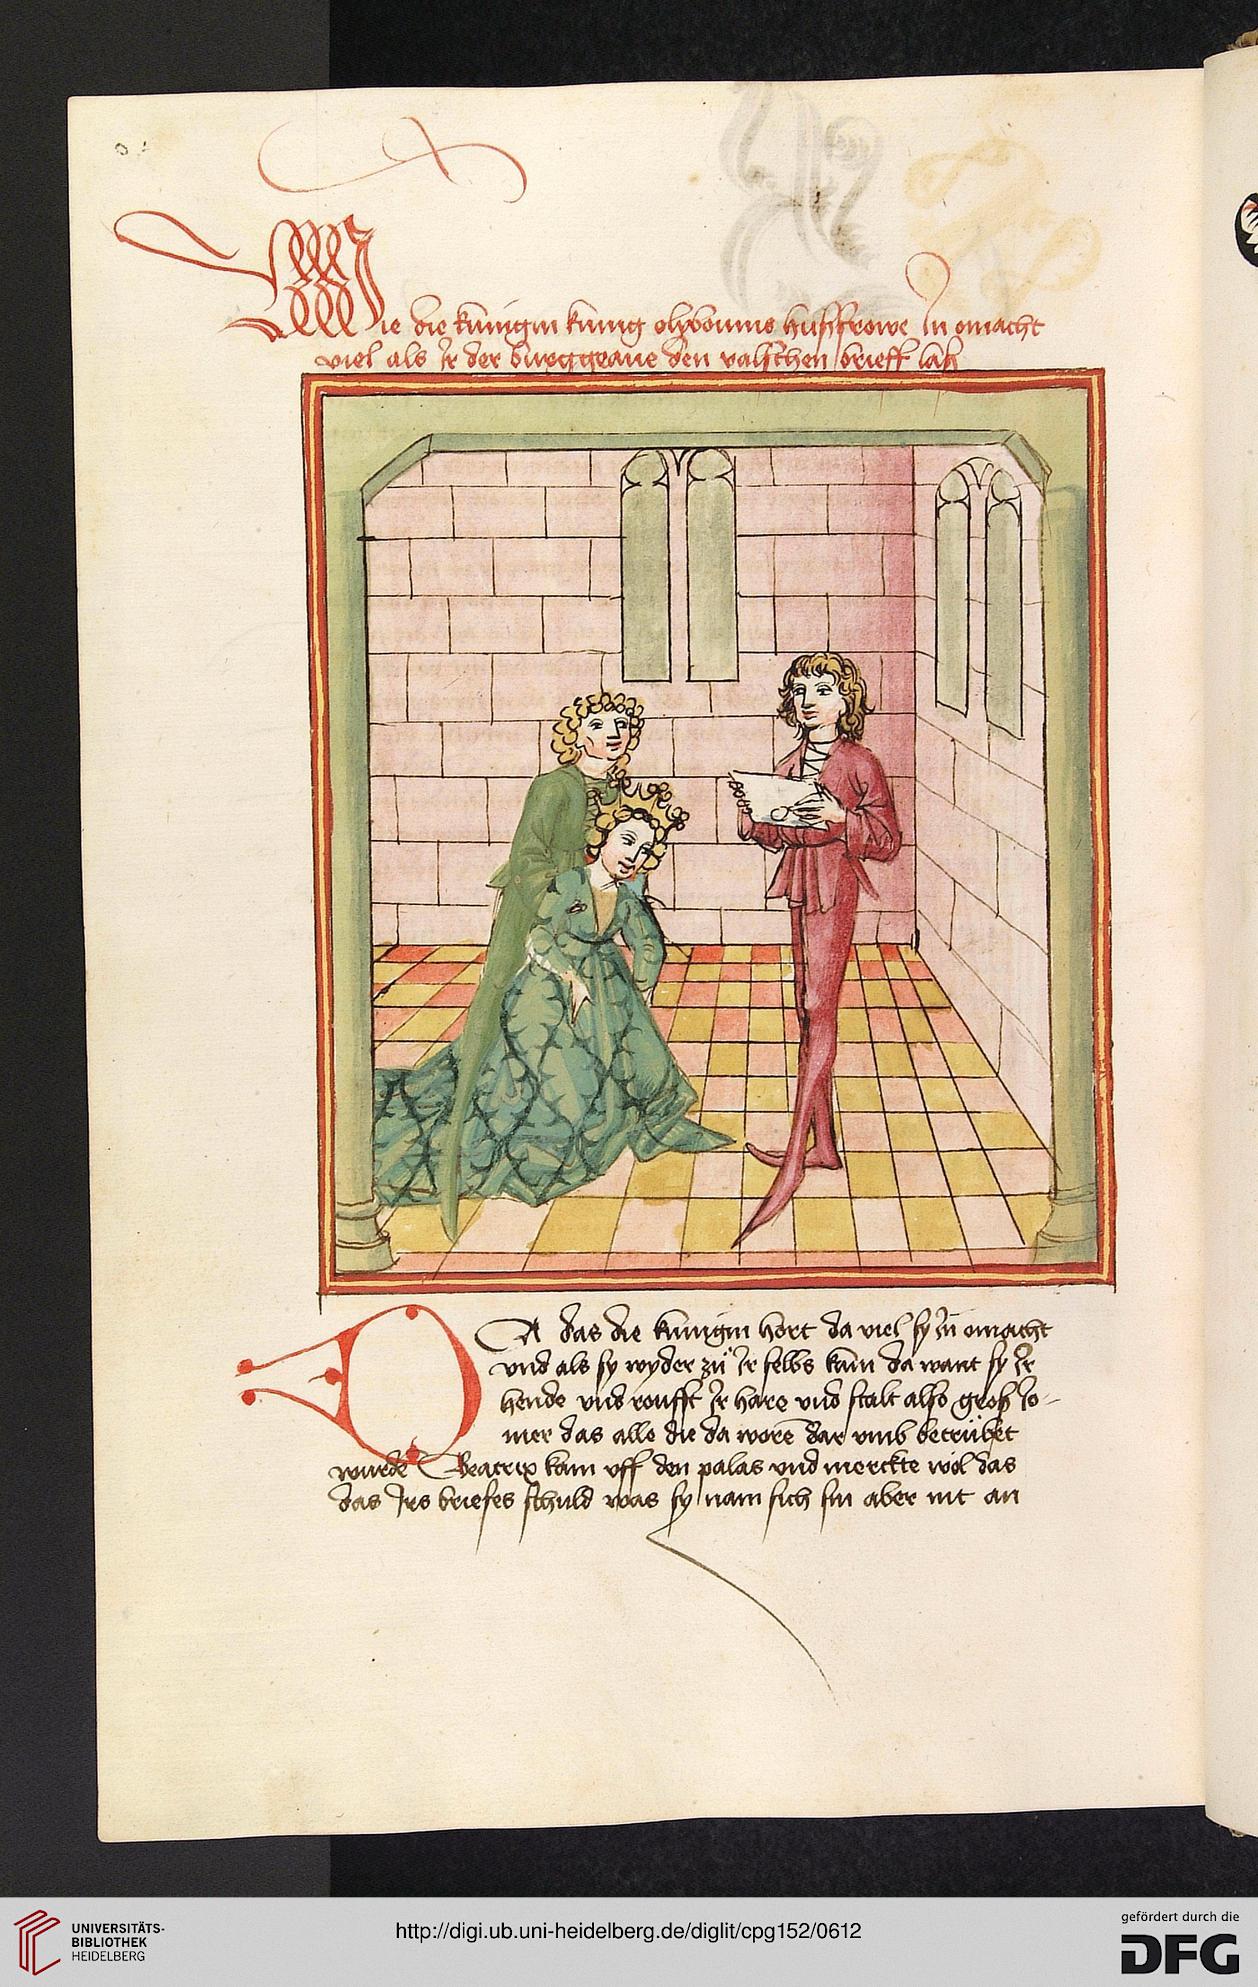 Wie die kunigin kunig olybouins hußfrowe In omacht
viel als Ir der burggraue den valschen brieff laß
DA das die kunigin hort da viel sy In omacht
vnd als sy wyder zu Ir selbs kam da want sy Ir
hende vnd roufft Ir hare vnd stalt also groß Jo-
mer das alle die da woren dar vmb betrübet
wurde Beatrix kam vff den palas vnd merckte wol das
das Irs briefes schuld was sy nam sich sin aber nit an
UNIVERSITÄTS-
BIBLIOTHEK
HEIDELBERG
http://digi.ub.uni-heidelberg.de/diglit/cpg152/0612
gefördert durch die
DFG